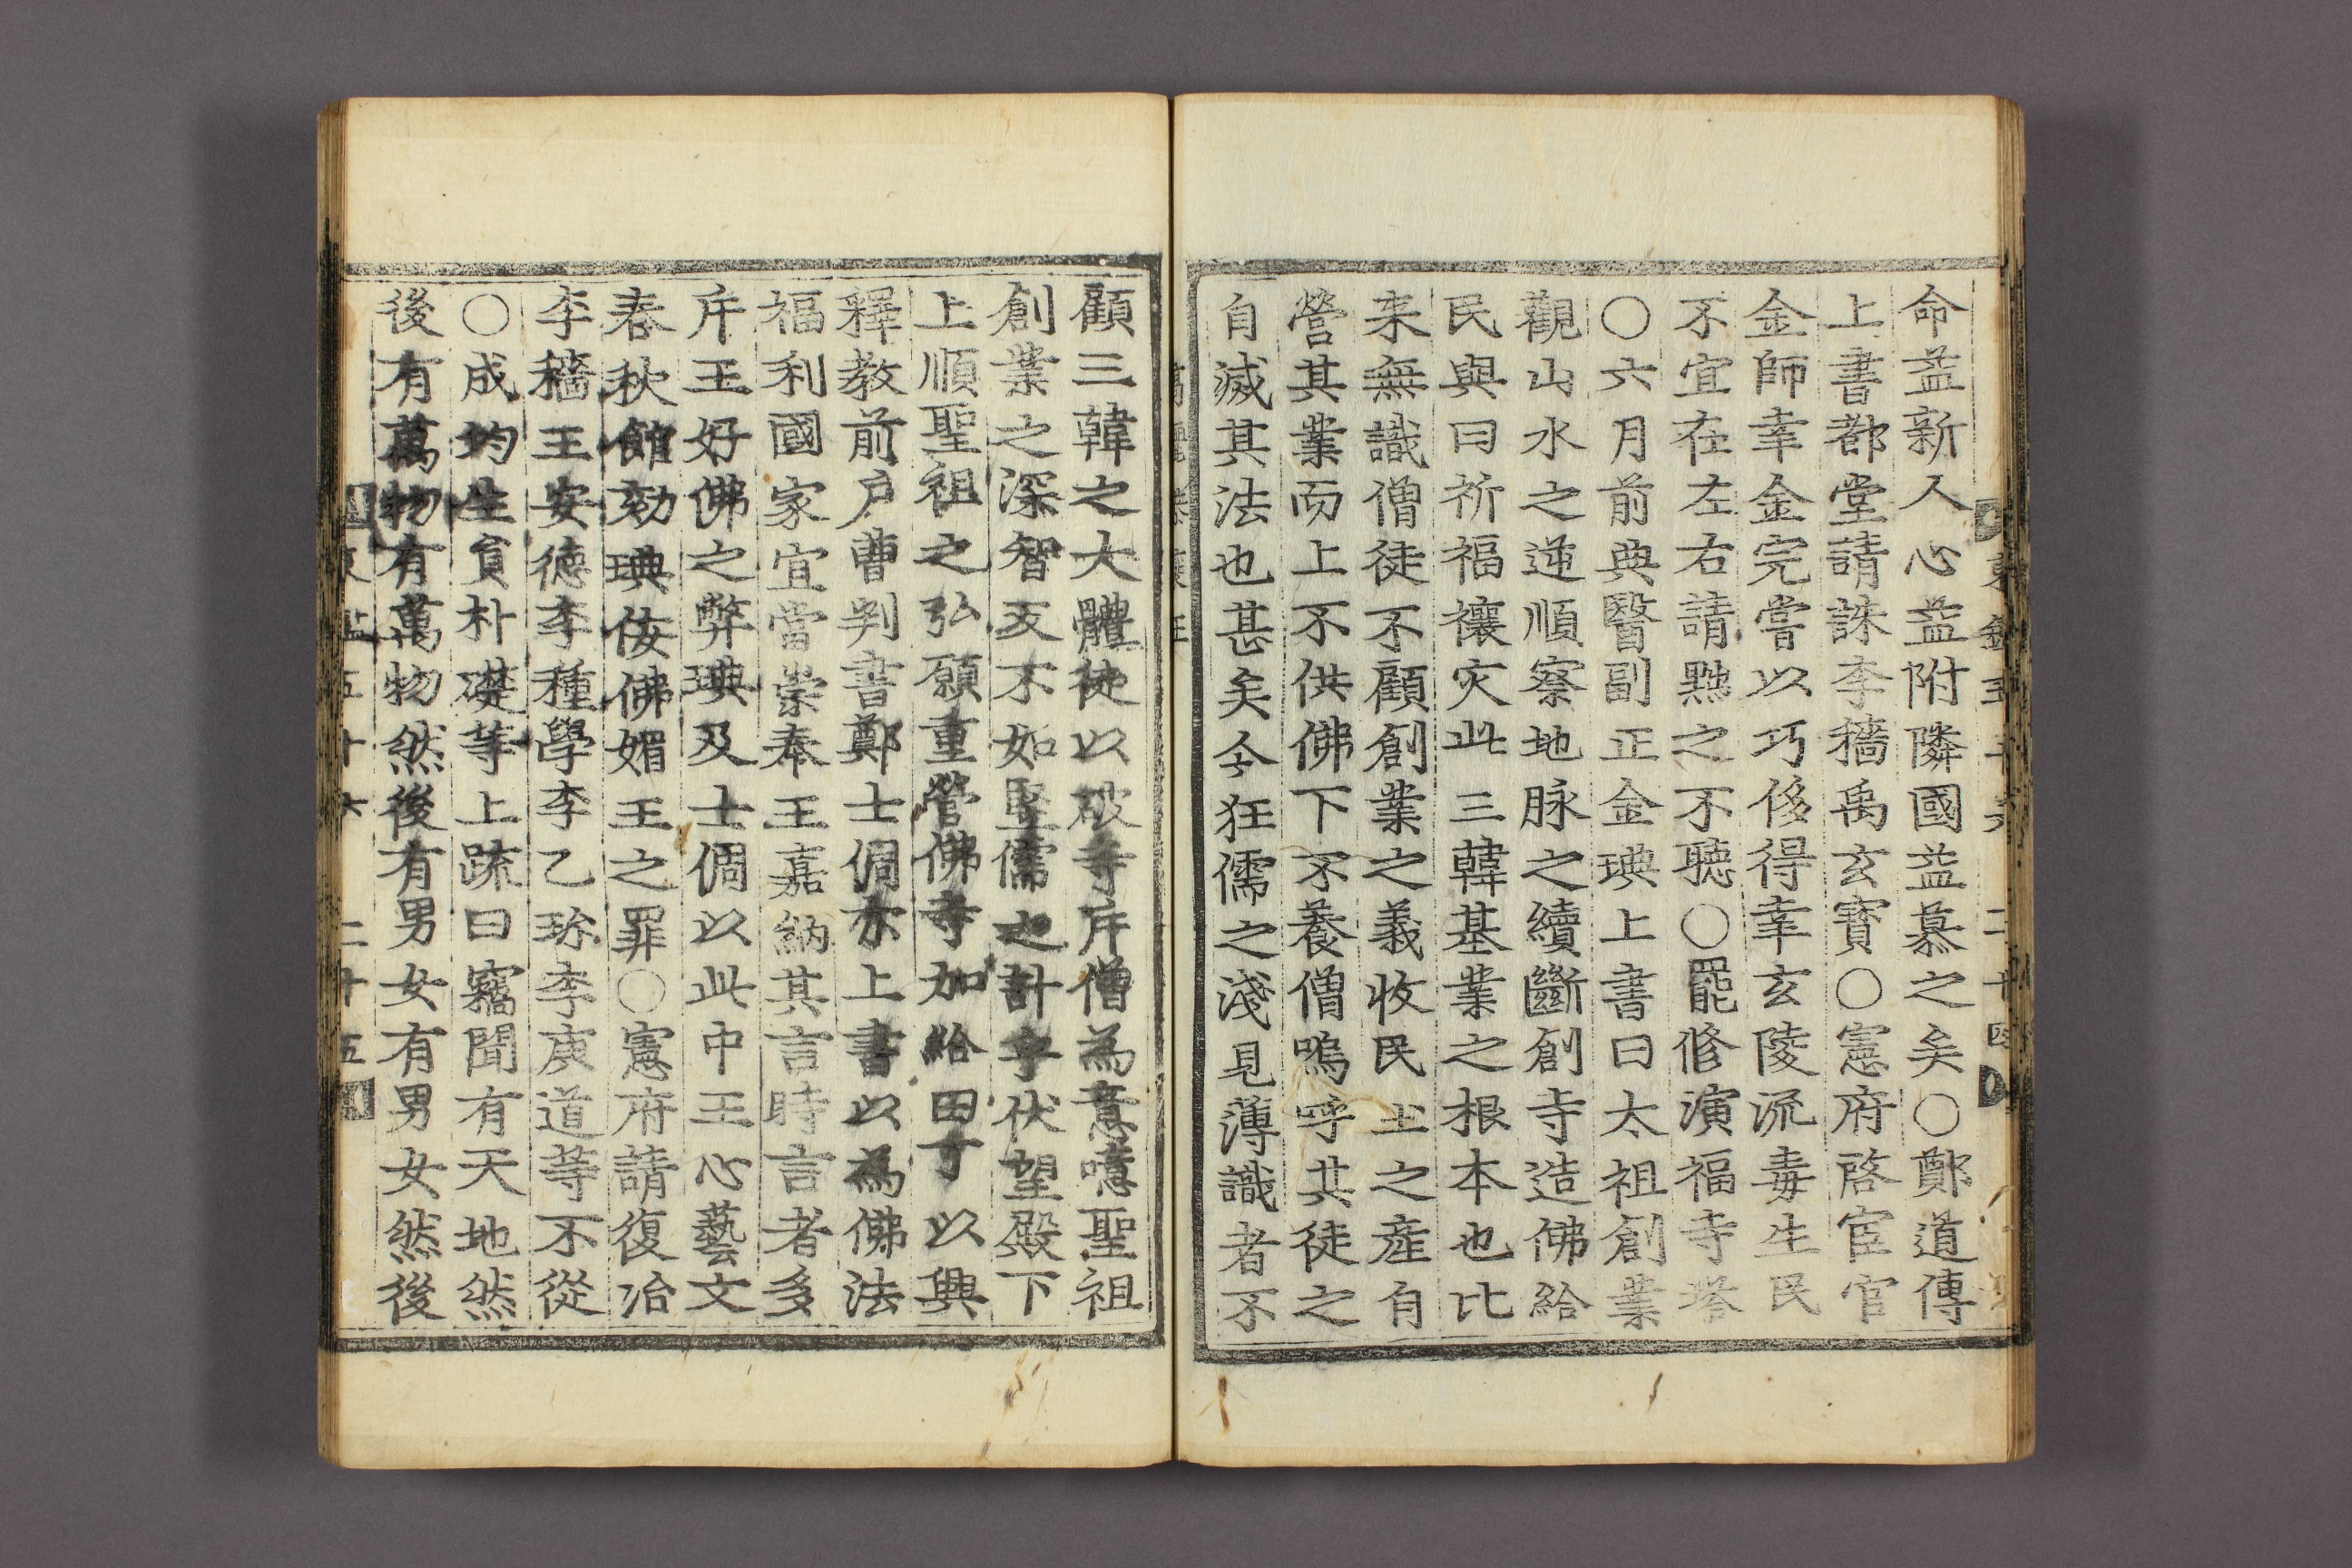 命益新人心益附隣國益慕之矣○鄭道傳
上書都堂請誅李穡禹玄寶○憲府啓宦官
金師幸金完嘗以巧侈得幸玄陵流毒生民
不宜在左右請黜之不聽○罷修演福寺塔
○六月前典醫副正金琠上書曰太祖創業
觀山水之逆順察地脉之續斷創寺造佛給
民與曰祈福禳灾此三韓基業之根本也比
来無識僧徒不顧創業之義收民土之産自
營其業而上不供佛下不養僧嗚呼其徒之
自滅其法也甚矣今狂儒之淺見薄識者不
顧三韓之大體徒以破寺斥僧為意噫聖祖
創業之深智反不如竪儒之計乎伏望殿下
上順聖祖之弘願重營佛寺加給田丁以興
釋教前戶曹判書鄭士倜亦上書以為佛法
福利國家宜當崇奉王嘉納其言時言者多
斥王好佛之弊琠及士倜以此中王心藝文
春秋館劾琠佞佛媚王之罪○憲府請復治
李穡王安德李種學李乙珍李庚道等不從
○成均生員朴礎等上疏曰竊聞有天地然
後有萬物有萬物然後有男女有男女然後
東 五十六 二十五